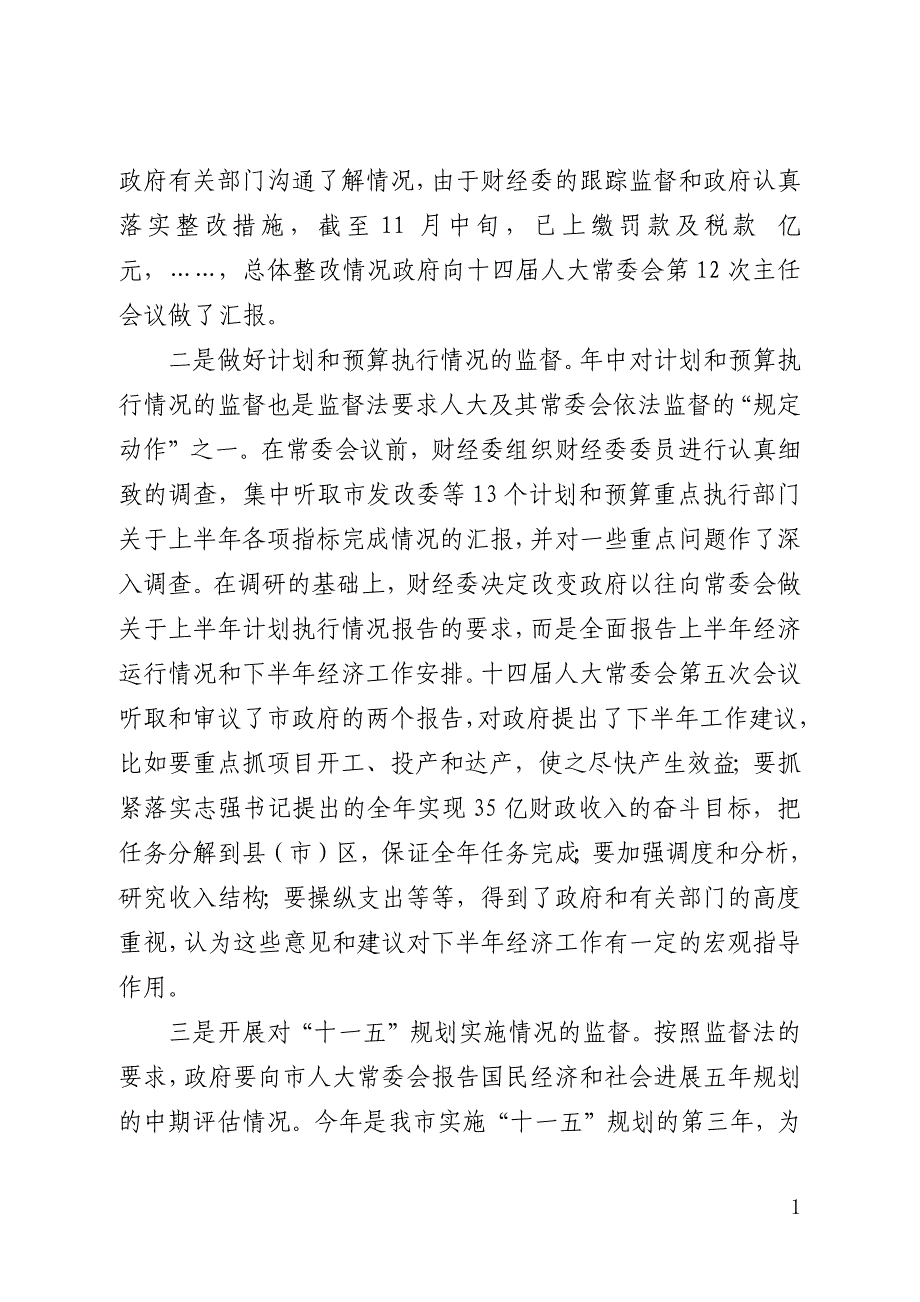 政府有关部门沟通了解情况,由于财经委的跟踪监督和政府认真
落实整改措施，截至 11 月中旬，已上缴罚款及税款 亿
元，……，总体整改情况政府向十四届人大常委会第 12 次主任
会议做了汇报。
二是做好计划和预算执行情况的监督。年中对计划和预算执
行情况的监督也是监督法要求人大及其常委会依法监督的“规定
动作”之一。在常委会议前，财经委组织财经委委员进行认真细
致的调查，集中听取市发改委等 13 个计划和预算重点执行部门
关于上半年各项指标完成情况的汇报,并对一些重点问题作了深
入调查。在调研的基础上，财经委决定改变政府以往向常委会做
关于上半年计划执行情况报告的要求,而是全面报告上半年经济
运行情况和下半年经济工作安排。十四届人大常委会第五次会议
听取和审议了市政府的两个报告,对政府提出了下半年工作建议,
比如要重点抓项目开工、投产和达产，使之尽快产生效益;要抓
紧落实志强书记提出的全年实现 35 亿财政收入的奋斗目标，把
任务分解到县（市）区，保证全年任务完成;要加强调度和分析，
研究收入结构;要操纵支出等等，得到了政府和有关部门的高度
重视,认为这些意见和建议对下半年经济工作有一定的宏观指导
作用。
三是开展对“十一五”规划实施情况的监督。按照监督法的
要求,政府要向市人大常委会报告国民经济和社会进展五年规划
的中期评估情况。今年是我市实施“十一五”规划的第三年，为
1